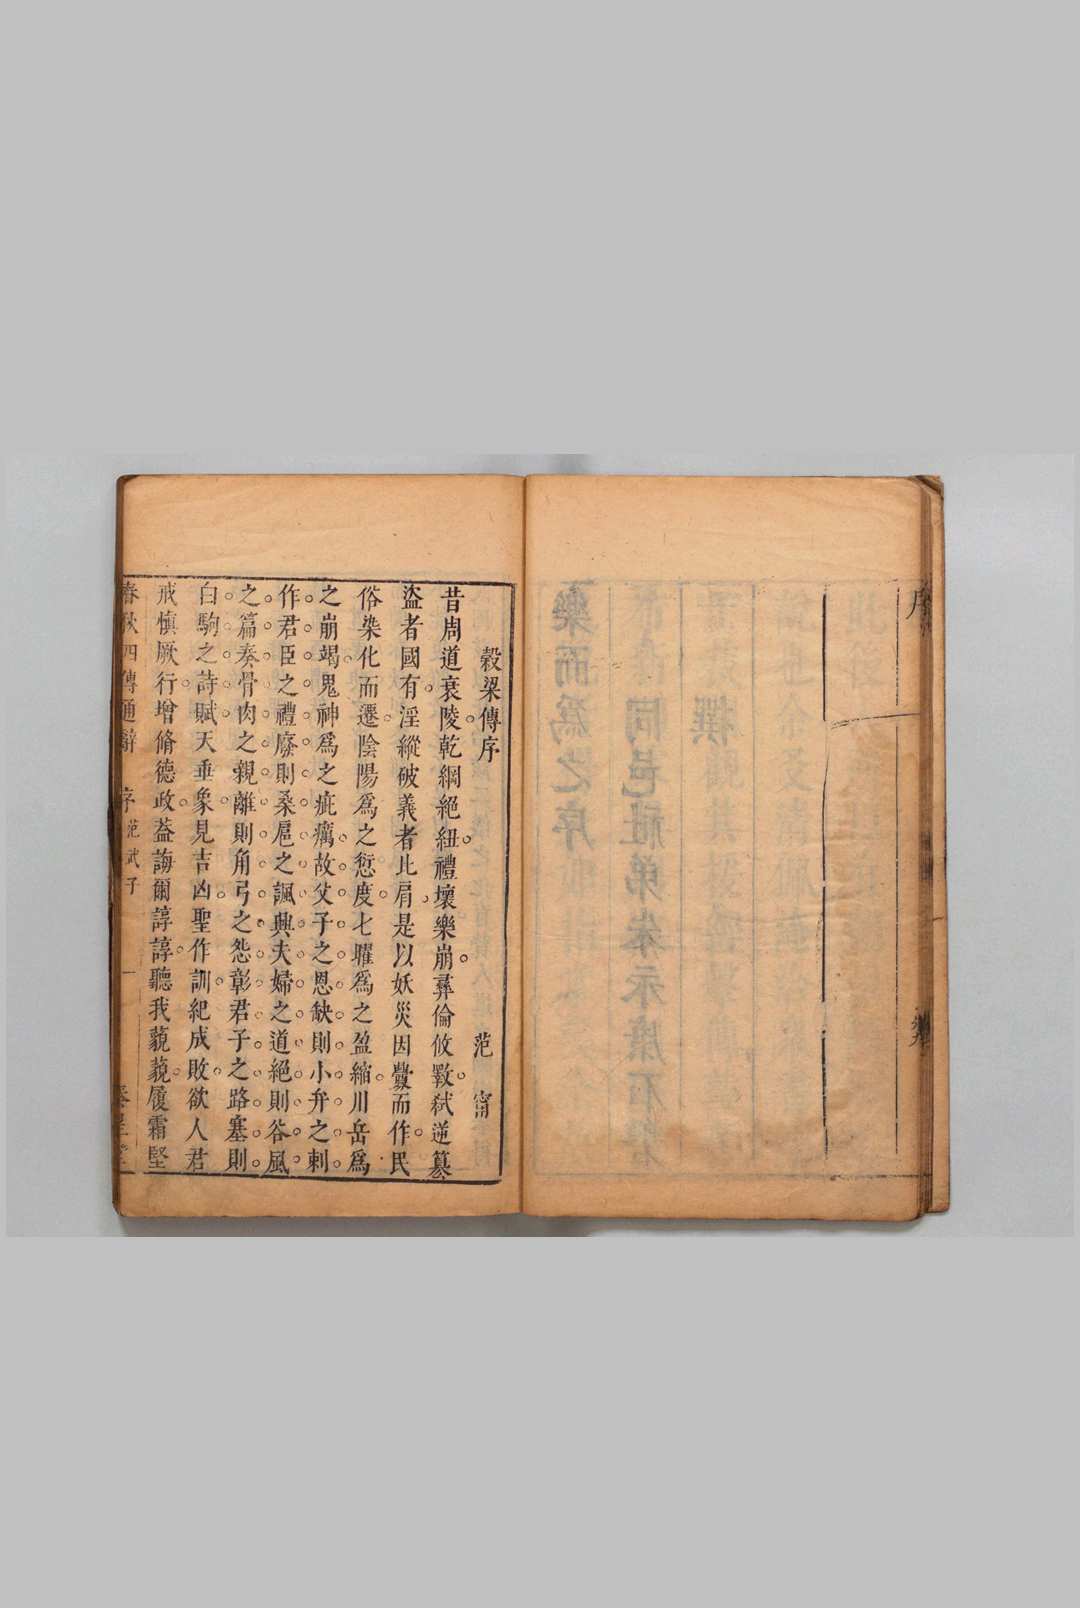 序
穀梁傳序
范　甯
昔周道衰陵乾綱絕紐禮壞樂崩彝倫攸斁弑逆篡
盜者國有淫縱破義者比肩是以妖災因釁而作民
俗染化而遷陰陽爲之愆度七耀爲之盈縮川岳爲
之崩竭鬼神爲之疵癘故父子之恩缺則小弁之刺
作君臣之禮廢則桑扈之諷興夫婦之道絕則谷風
之篇奏骨肉之親離則角弓之怨彰君子之路塞則
白駒之詩賦天垂象見吉凶聖作訓紀成敗欲人君
戒慎厥行增脩德政葢誨爾諄諄聽我藐藐履霜堅
春秋四傳通辭　序　范武子　一